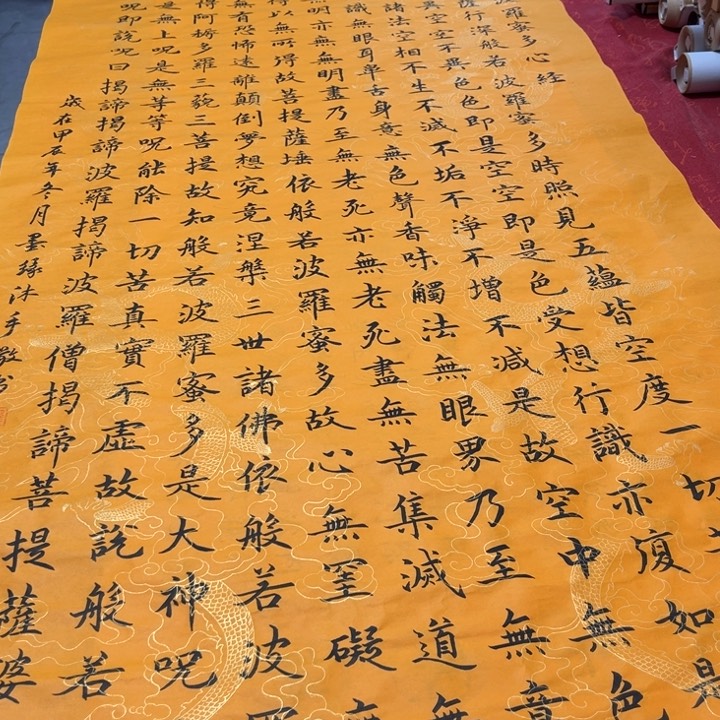 波羅蜜多心經
薩行深般若波羅蜜多時照見五蘊皆空度一切
異空空不異色色即是空空即是色受想行識亦復如是
諸法空相不生不滅不垢不淨不增不減是故空中無色
識無眼耳鼻舌身意無色聲香味觸法無眼界乃至無意
無明亦無無明盡乃至無老死亦無老死盡無苦集滅道無
得以無所得故菩提薩埵依般若波羅蜜多故心無罣礙無
無有恐怖遠離顛倒夢想究竟涅槃三世諸佛依般若波羅
得阿耨多羅三藐三菩提故知般若波羅蜜多是大神呪
是無上呪是無等等呪能除一切苦真實不虛故說般若
呪即說呪曰揭諦揭諦波羅揭諦波羅僧揭諦菩提薩婆
歲在甲辰年冬月墨緣沐手敬書